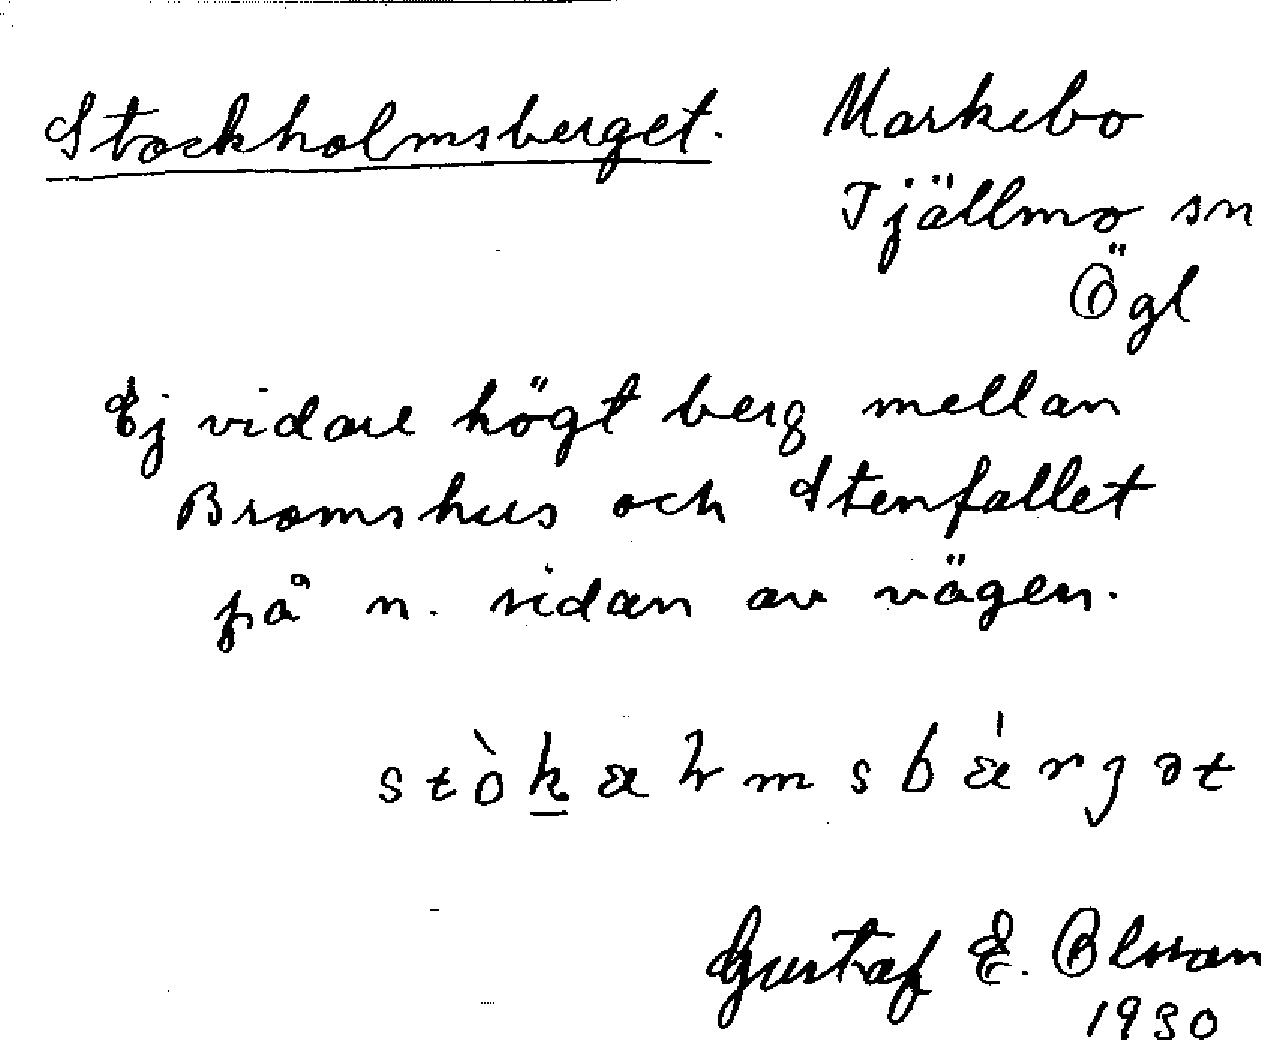 Stockholmsberget. Markebo
Tjällmo sn
Ögl
Ej vidare högt berg mellan
Bromshus och Stenfallet
på n. sidan av vägen.
Gustaf E. Olsson
1930